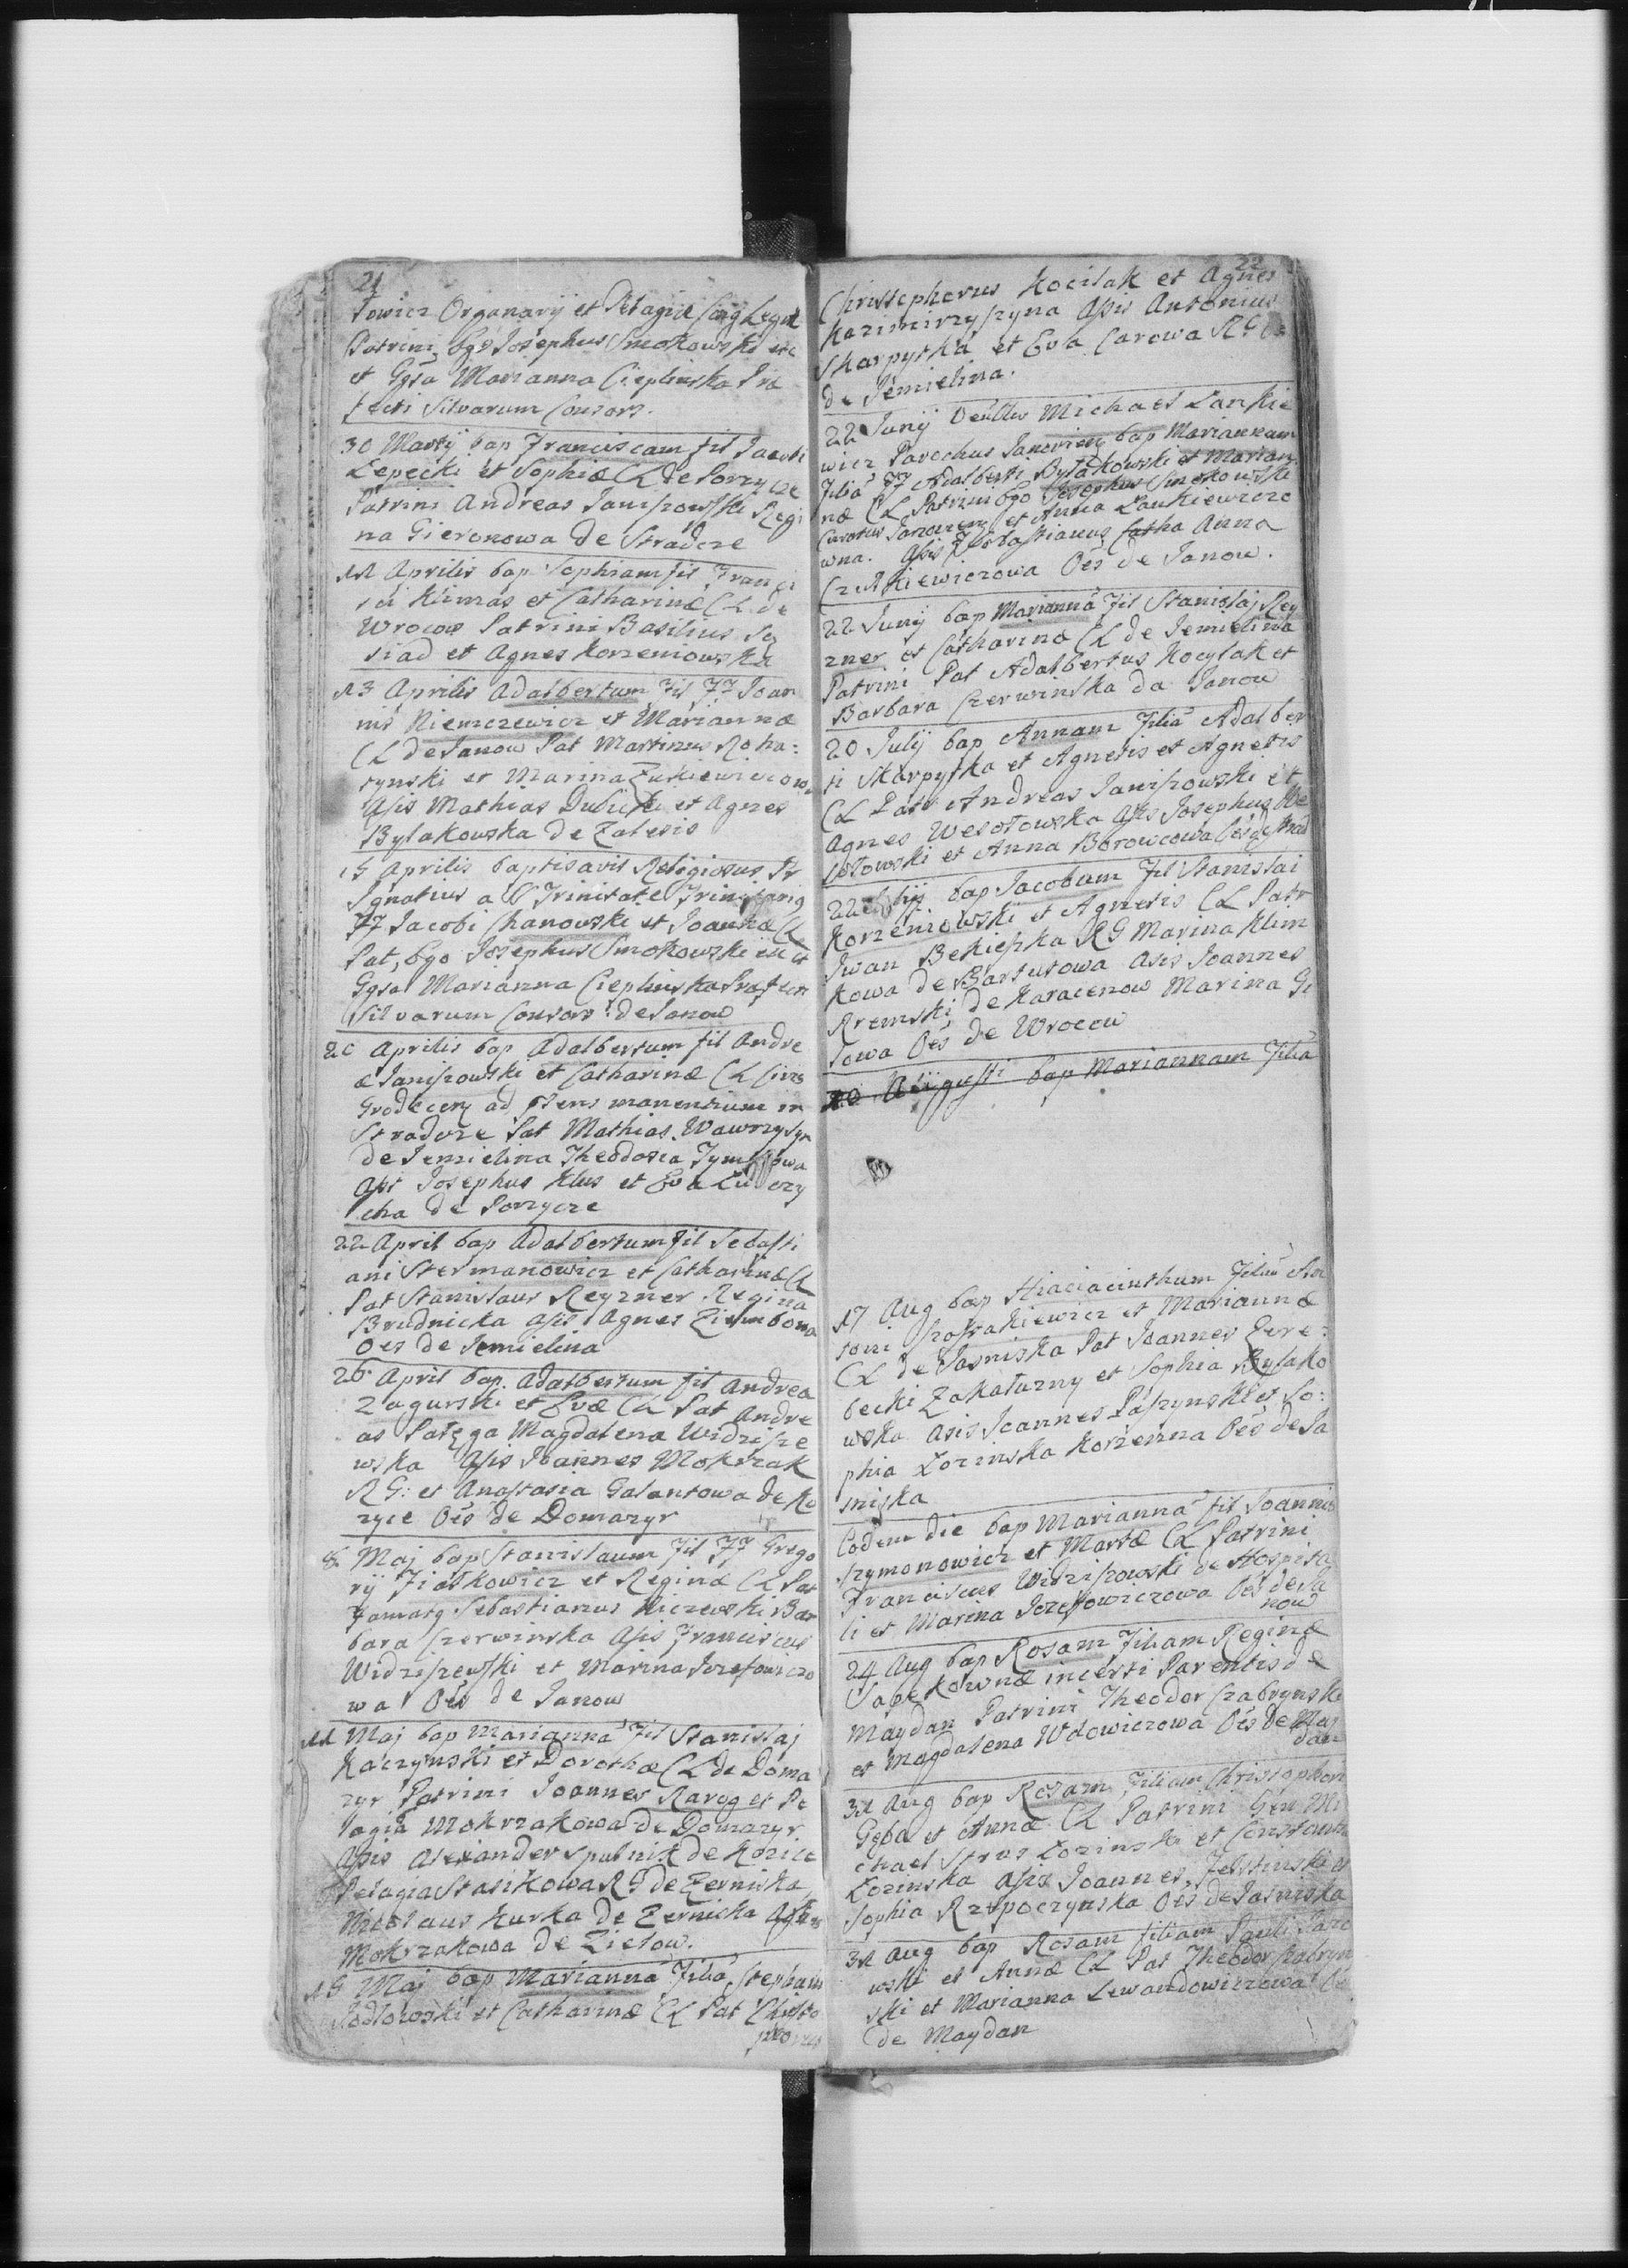 21
towicz Organarij et Pelagiæ Conjg Legit
Patrini, Ego Josephus Smokowski etc
et Ggsa Marianna Cieplinska Præ
fecti Silvarum Consors.
30 Martij bap Franciscam fil Jacobi
Lepecki et Sophiæ CL de Porzycze
Patrini Andreas Janiszowski Regi
na Gieronowa de Stradcze
11 Aprilis bap Sophiam fil Franci
sci Klimas et Catharinæ CL de
Wrocow Patrini Basilius Są
siad et Agnes Korzeniowska
13 Aprilis Adalbertum Fil FF Joan
nis Niemczewicz et Mariannæ
CL de Janow Pat Martinus Roha:
tynski et Marina Zukiewiczow
Assis Mathias Dubicki et Agnes
Bylakowska de Zalesis
15 Aprilis baptisavit Religiosus Pr
Ignatius a S Trinitate Trinitarig
FF Jacobi Chanowski et Joannæ CL
Pat, Ego Josephus Smokowski et
Ggsa Marianna Cieplinska Præfecti
Silvarum Consors de Janow
20 Aprilis bap Adalbertum fil Andre
æ Janiszowski et Catharinæ CL Civis
Grodecen ad psens manentium in
Stradcze Pat Mathias Wawrzysyn
de Jemielina Theodosia Tymkowa
Asst Josephus Klus et Eva
cha de Porzycze
22 April bap Adalbertum Fil Sebasti
ani Stermanowicz et Catharinæ CL
Pat Stanislaus Reyzner Regina
Brudnicka Assis Agnes Ziembowa
Oēs de Jemielina
26 April bap. Adalbertum fil Andrea
Zagurski et Evæ CL Pat Andre
as Pałęga Magdalena Widzisze
wska Assis Joannes Mokrzak
RG: et Anastasia Galantowa de Ko
zyce Oēs de Domazyr
8 Maj bap Stanislaum Fil FF Grego
rij Fiałkowicz et Reginæ CL Pat
Famatg Sebastianus Kiczewski Bar
bara Czerwinska Assis Franciscus
Widziszewski et Marina Jozefowiczo
wa Oēs de Janow
11 Maj bap Mariannā Fil Stanislaj
Kaczynski et Dorothæ CL de Doma
zyr Patrini Joannes Rarog et Pe
lagia Mokrzakowa de Domazyr
Assis Alexander Spulnik de Kozice
Pelagia Stasikowa RG de Zerniska
Nicolaus Kurka de Zerniska Agnes
Mokrzakowa de Zielow.
15 Maj bap Mariannā Filiā Stephani
Podlowski et Catharinæ CL Pat Christo
phorus
22
Christephorus Kocilak et Agnes
Kazimirzyszyna Assis Antonius
Skarpytka et Eva Carowa RG Oēs
de Jemielina.
22 Junij Venlus Michael Lankie
wicz Parochus Janovien bap Mariannam
Filiā FF Adalberti Bylakowski et Marian
næ CL Patrini Ego Josephus Smokowski
Curatus Janovien et Anna Lankiewiczo
wna. Assis Sebastianus Łatha Anna
Czukiewiczowa Oēs de Janow.
22 Junij bap Mariannā Fil Stanislaj Rey
zner et Catharina CL de Jemielina
Patrini Pat Adalbertus Kocylak et
Barbara Czerwinska da Janow
20 Julij bap Annam Filiā Adalber
ti Skarpytka et Agnetis et Agnetis
CL Patr Andreas Janiszowski et
Agnes Wesołowska Assis Josephus We
sołowski et Anna Borowcowa Oēs de Strad
22 Julij bap Jacobum Fil Stanislai
Korzeniowski et Agnetis CL Patr
Iwan Bekieszka RG Marina Klim
kowa de Bartutowa Asis Joannes
Kremski de Karacenow Marina Gi
lowa Oēs de Wrocow
20 Augusti bap Mariannam Filiā
17 Aug bap Hiaciacinthum Filiū An
toni Szostakiewicz et Mariannæ
CL de Jasniska Pat Joannes Zere:
becki Zakałuzny et Sophia Bylako
wska Asis Joannes Paszynski et So:
phia Łozinska Korzenna Oēs de Ja
sniska
Eodem die bap Mariannā fil Joannis
Szymonowicz et Martæ CL Patrini
Franciscus Widziszowski de Hospita
li et Marina Jozefowiczowa Oēs de Ja
now
24 Aug bap Rosam Filiam Reginæ
Sapekownæ incerti Parentis de
Maydan Patrini Theodor Czabrynski
et Magdalena Wdowiczowa Oēs de May
dan
31 Aug bap Rosam, Filiam Christophori
Gęba et Annæ CL Patrini Gen Mi
chael Strus Łozinski et Constantia
Łozinska Assis Joannes Felstinski et
Sophia Rzepoczynska Oēs de Jasniska
31 Aug bap Rosam filiam Pauli Jaro
wski et Annæ CL Pat Theodor Czabryn
ski et Marianna Lewandowiczowa Oēs
de Maydan